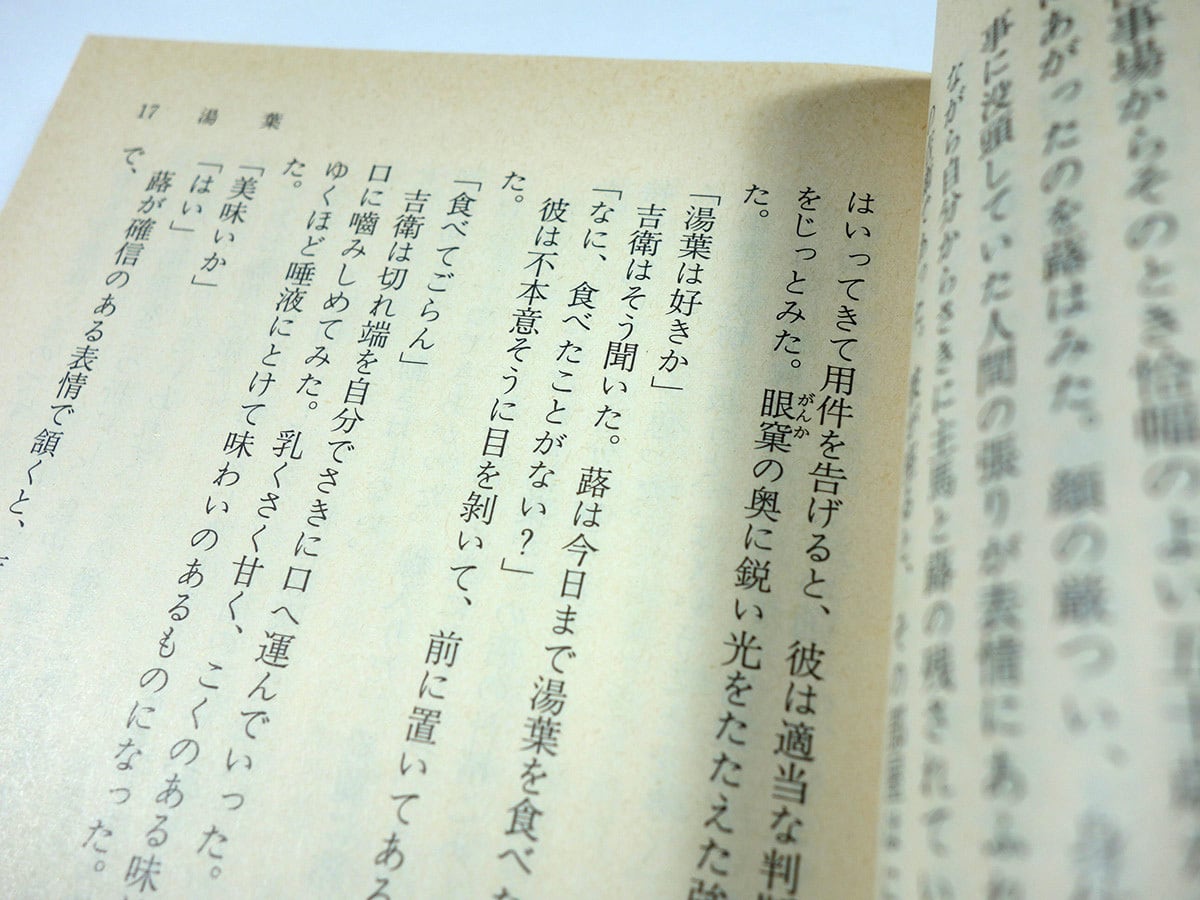 事場からそのとき恰幅のよい
あがったのを蕗はみた。顔の厳つい、身
事に没頭していた人間の張りが表情にあふれ
ながら自分からさきに主馬と蕗の残されてい
17 湯葉
はいってきて用件を告げると、彼は適当な判
をじっとみた。眼窠の奥に鋭い光をたたえた強
がんか
た。
「湯葉は好きか」
吉衛はそう聞いた。蕗は今日まで湯葉を食べた
「なに、食べたことがない?」
た。
彼は不本意そうに目を剝いて、前に置いてある
「食べてごらん」
吉衛は切れ端を自分でさきに口へ運んでいった。
口に嚙みしめてみた。乳くさく甘く、こくのある味
ゆくほど唾液にとけて味わいのあるものになった。
た。
「美味いか」
「はい」
蕗が確信のある表情で頷くと、
で、